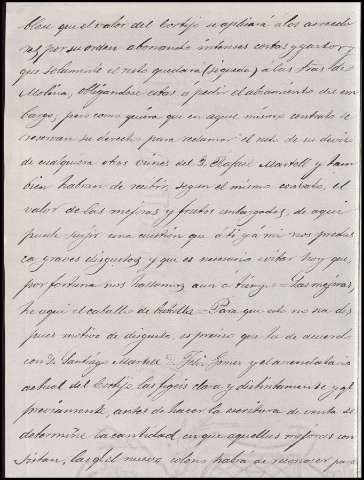 bleu que el valor del Cortijo se aplicará á los acreedo
res, por su orden abonando intereses costas y gastos, y
que solamente el resto quedará (si queda) á las Stas de
Molina, obligandose estas a pedir el alzamiento del em
bargo, pero como quiera que en aquel mismo contrato se
reservan su derecho para reclamar el resto de su deuda
de cualquiera otros vienes del D. Rafael Martell y tam
bien habian de recibir, segun el mismo contrato, el
valor de las mejoras y frutos embargados, de aqui
puede surjir una cuestion que á ti y á mi nos produz
ca graves disgustos y que es necesario evitar hoy que,
por fortuna nos hallamos aun á tiempo. Las mejoras,
he aqui el caballo de batalla. Para que esto no sea des
pues motivo de disgusto, es preciso que tu de acuerdo
con D. Santiago Martell Gomez y el arrendatario
actual del Cortijo, las fijeis clara y distintamente y q.e
previamente, antes de hacer la escritura de venta se
determine la cantidad en que aquellas mejoras con
sistan, las q.e el nuevo colono habrá de reconocer para